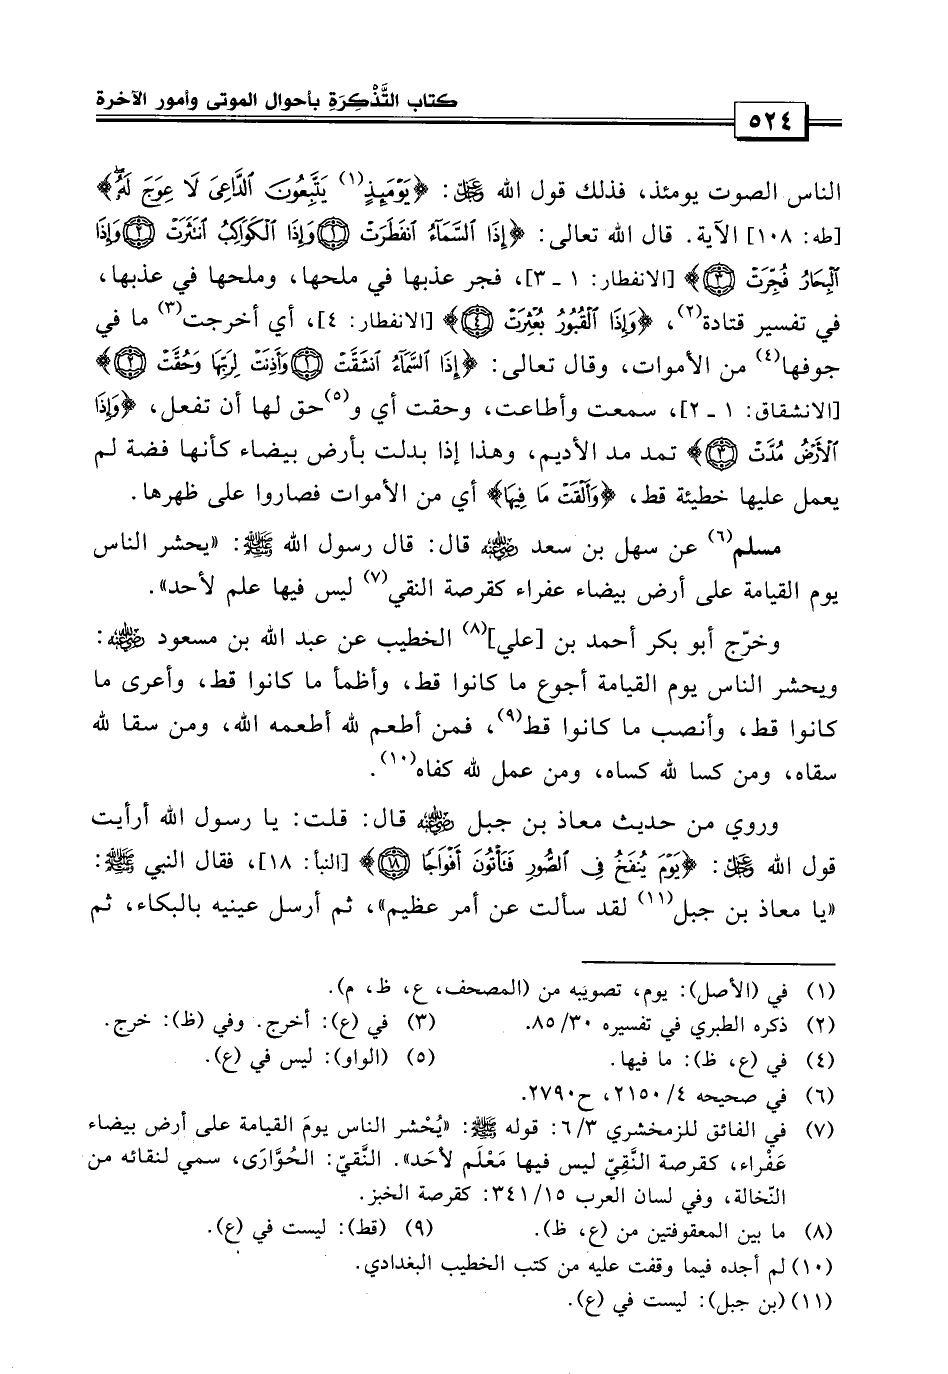 كتاب التَّذْكِرَةِ بأحوال الموتى وأمور الآخرة
٥٢٤
الناس الصوت يومئذ، فذلك قول الله ﷻ: ﴿يَوْمَئِذٍ(١) يَتَّبِعُونَ ٱلدَّاعِىَ لَا عِوَجَ لَهُۥۖ﴾
[طه: ١٠٨] الآية. قال الله تعالى: ﴿إِذَا ٱلسَّمَآءُ ٱنفَطَرَتْ ۝١ وَإِذَا ٱلْكَوَاكِبُ ٱنتَثَرَتْ ۝٢ وَإِذَا
ٱلْبِحَارُ فُجِّرَتْ ۝٣﴾ [الانفطار: ١ ـ ٣]، فجر عذبها في ملحها، وملحها في عذبها،
في تفسير قتادة(٢)، ﴿وَإِذَا ٱلْقُبُورُ بُعْثِرَتْ ۝٤﴾ [الانفطار: ٤]، أي أخرجت(٣) ما في
جوفها(٤) من الأموات، وقال تعالى: ﴿إِذَا ٱلسَّمَآءُ ٱنشَقَّتْ ۝١ وَأَذِنَتْ لِرَبِّهَا وَحُقَّتْ ۝٢﴾
[الانشقاق: ١ ـ ٢]، سمعت وأطاعت، وحقت أي و(٥)حق لها أن تفعل، ﴿وَإِذَا
ٱلْأَرْضُ مُدَّتْ ۝٣﴾ تمد مد الأديم، وهذا إذا بدلت بأرض بيضاء كأنها فضة لم
يعمل عليها خطيئة قط، ﴿وَأَلْقَتْ مَا فِيهَا﴾ أي من الأموات فصاروا على ظهرها.
مسلم(٦) عن سهل بن سعد رضي الله عنه قال: قال رسول الله ﷺ: «يحشر الناس
يوم القيامة على أرض بيضاء عفراء كقرصة النقي(٧) ليس فيها علم لأحد».
وخرّج أبو بكر أحمد بن [علي](٨) الخطيب عن عبد الله بن مسعود رضي الله عنه:
ويحشر الناس يوم القيامة أجوع ما كانوا قط، وأظمأ ما كانوا قط، وأعرى ما
كانوا قط، وأنصب ما كانوا قط(٩)، فمن أطعم لله أطعمه الله، ومن سقا لله
سقاه، ومن كسا لله كساه، ومن عمل لله كفاه(١٠).
وروي من حديث معاذ بن جبل رضي الله عنه قال: قلت: يا رسول الله أرأيت
قول الله ﷻ: ﴿يَوْمَ يُنفَخُ فِى ٱلصُّورِ فَتَأْتُونَ أَفْوَاجًا ۝١٨﴾ [النبأ: ١٨]، فقال النبي ﷺ:
«يا معاذ بن جبل(١١) لقد سألت عن أمر عظيم»، ثم أرسل عينيه بالبكاء، ثم
(١) في (الأصل): يوم، تصويبه من (المصحف، ع، ظ، م).
(٢) ذكره الطبري في تفسيره ٨٥/٣٠. (٣) في (ع): أخرج. وفي (ظ): خرج.
(٤) في (ع، ظ): ما فيها. (٥) (الواو): ليس في (ع).
(٦) في صحيحه ٢١٥٠/٤، ح٢٧٩٠.
(٧) في الفائق للزمخشري ٦/٣: قوله ﷺ: «يُحْشر الناس يومَ القيامة على أرض بيضاء
عَفْراء، كقرصة النَّقِيّ ليس فيها مَعْلَم لأحَد». النَّقيّ: الحُوَّارَى، سمي لنقائه من
النّخالة، وفي لسان العرب ٣٤١/١٥: كقرصة الخبز.
(٨) ما بين المعقوفتين من (ع، ظ). (٩) (قط): ليست في (ع).
(١٠) لم أجده فيما وقفت عليه من كتب الخطيب البغدادي.
(١١) (بن جبل): ليست في (ع).